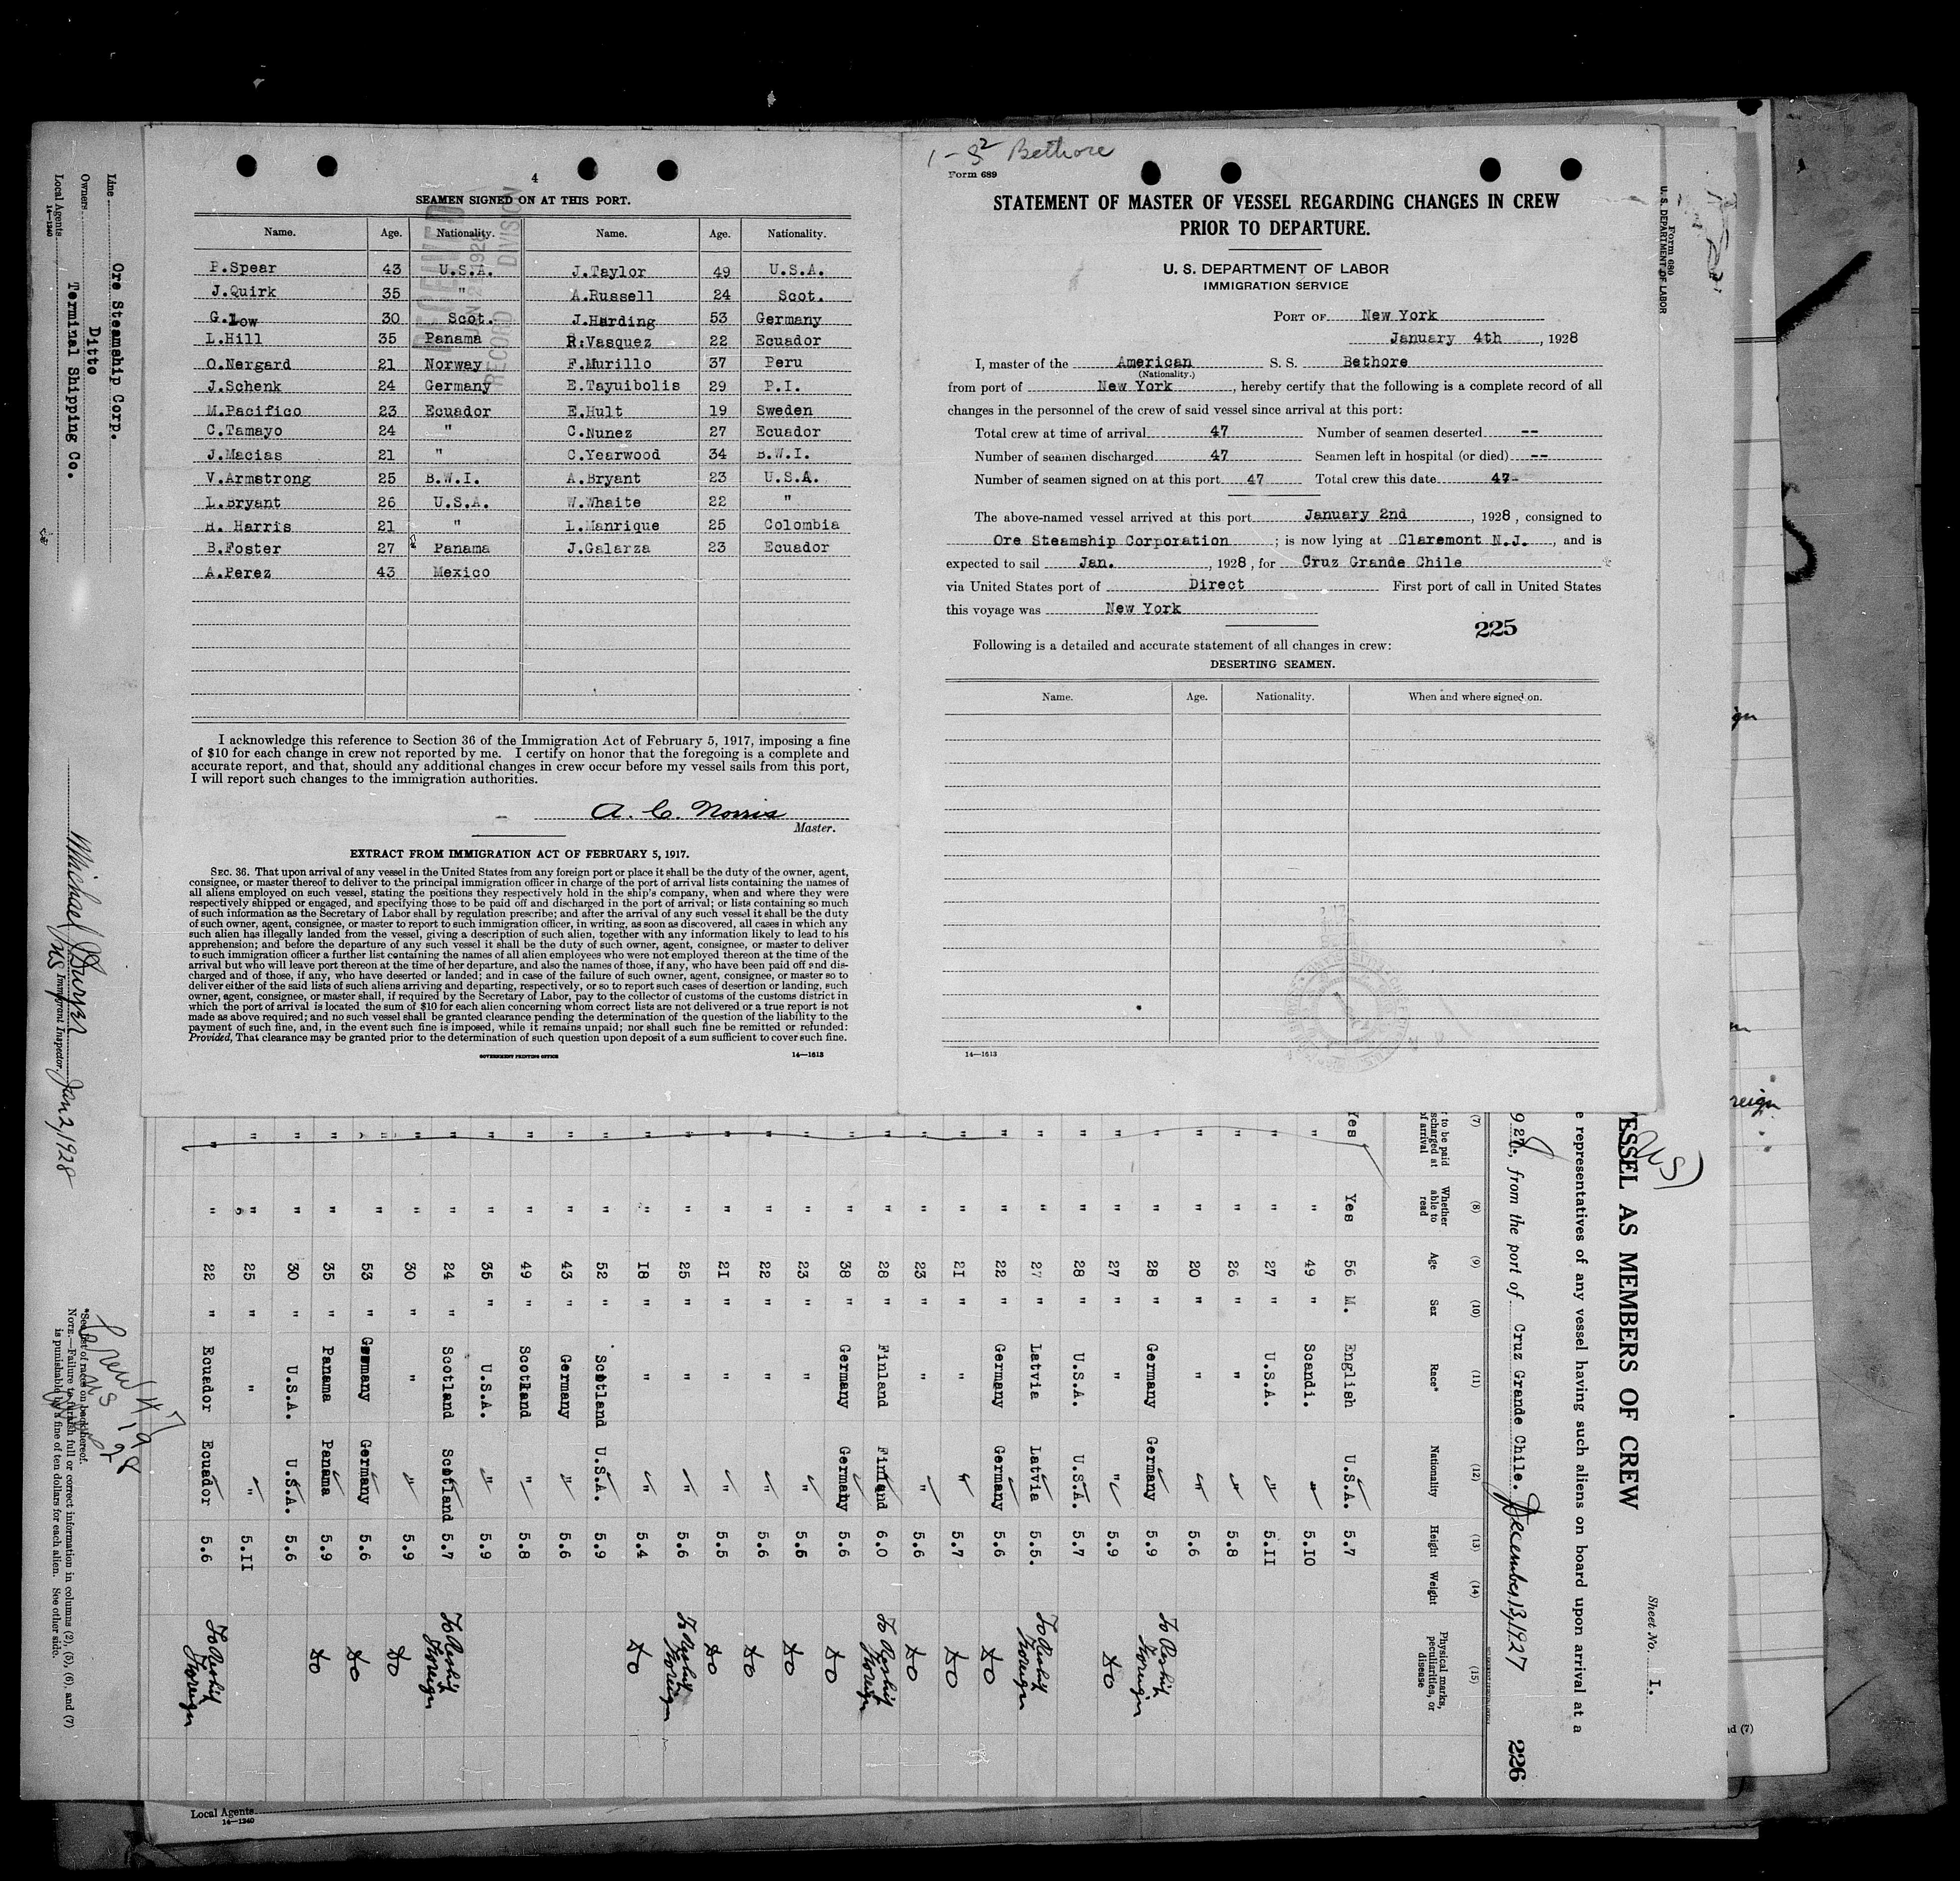 4
SEAMEN SIGNED ON AT THIS PORT.
Name. Age. Nationality. Name. Age. Nationality.
P.Spear 43 U.S.A. J.Taylor 49 U.S.A.
J.Quirk 35 " A.Russell 24 Scot.
G.Low 30 Scot. J.Harding 53 Germany
L.Hill 35 Panama R.Vasquez 22 Ecuador
O.Nergard 21 Norway F.Murillo 37 Peru
J.Schenk 24 Germany E.Tayuibolis 29 P.I.
M.Pacifico 23 Ecuador E.Hult 19 Sweden
C.Tamayo 24 " C.Nunez 27 Ecuador
J.Macias 21 " C.Yearwood 34 B.W.I.
V.Armstrong 25 B.W.I. A.Bryant 23 U.S.A.
L.Bryant 26 U.S.A. W.Whaite 22 "
H. Harris 21 " L.Manrique 25 Colombia
B.Foster 27 Panama J.Galarza 23 Ecuador
A.Perez 43 Mexico
RECEIVED
RECORD DIVISION
I acknowledge this reference to Section 36 of the Immigration Act of February 5, 1917, imposing a fine
of $10 for each change in crew not reported by me. I certify on honor that the foregoing is a complete and
accurate report, and that, should any additional changes in crew occur before my vessel sails from this port,
I will report such changes to the immigration authorities.
A. C. Norris
Master.
EXTRACT FROM IMMIGRATION ACT OF FEBRUARY 5, 1917.
SEC. 36. That upon arrival of any vessel in the United States from any foreign port or place it shall be the duty of the owner, agent,
consignee, or master thereof to deliver to the principal immigration officer in charge of the port of arrival lists containing the names of
all aliens employed on such vessel, stating the positions they respectively hold in the ship's company, when and where they were
respectively shipped or engaged, and specifying those to be paid off and discharged in the port of arrival; or lists containing so much
of such information as the Secretary of Labor shall by regulation prescribe; and after the arrival of any such vessel it shall be the duty
of such owner, agent, consignee, or master to report to such immigration officer, in writing, as soon as discovered, all cases in which any
such alien has illegally landed from the vessel, giving a description of such alien, together with any information likely to lead to his
apprehension; and before the departure of any such vessel it shall be the duty of such owner, agent, consignee, or master to deliver
to such immigration officer a further list containing the names of all alien employees who were not employed thereon at the time of the
arrival but who will leave port thereon at the time of her departure, and also the names of those, if any, who have been paid off and dis-
charged and of those, if any, who have deserted or landed; and in case of the failure of such owner, agent, consignee, or master so to
deliver either of the said lists of such aliens arriving and departing, respectively, or so to report such cases of desertion or landing, such
owner, agent, consignee, or master shall, if required by the Secretary of Labor, pay to the collector of customs of the customs district in
which the port of arrival is located the sum of $10 for each alien concerning whom correct lists are not delivered or a true report is not
made as above required; and no such vessel shall be granted clearance pending the determination of the question of the liability to the
payment of such fine, and, in the event such fine is imposed, while it remains unpaid; nor shall such fine be remitted or refunded:
Provided, That clearance may be granted prior to the determination of such question upon deposit of a sum sufficient to cover such fine.
GOVERNMENT PRINTING OFFICE 14—1613
Bethore
Form 689
STATEMENT OF MASTER OF VESSEL REGARDING CHANGES IN CREW
PRIOR TO DEPARTURE.
U. S. DEPARTMENT OF LABOR
IMMIGRATION SERVICE
PORT OF New York
January 4th, 1928
I, master of the American S. S. Bethore
(Nationality.)
from port of New York, hereby certify that the following is a complete record of all
changes in the personnel of the crew of said vessel since arrival at this port:
Total crew at time of arrival 47 Number of seamen deserted --
Number of seamen discharged 47 Seamen left in hospital (or died) --
Number of seamen signed on at this port 47 Total crew this date 47-
The above-named vessel arrived at this port January 2nd, 1928, consigned to
Ore Steamship Corporation; is now lying at Claremont N.J., and is
expected to sail Jan., 1928, for Cruz Grande Chile
via United States port of Direct First port of call in United States
this voyage was New York
225
Following is a detailed and accurate statement of all changes in crew:
DESERTING SEAMEN.
Name. Age. Nationality. When and where signed on.
14—1613
Form 680
U. S. DEPARTMENT OF LABOR
Sheet No. 1.
ESSEL AS MEMBERS OF CREW
e representatives of any vessel having such aliens on board upon arrival at a
, from the port of Cruz Grande Chile. December, 13, 1927
226
(7) (8) (9) (10) (11) (12) (13) (14) (15)
to be paid
scharged at
of arrival
Whether able to read
Age
Sex
Race*
Nationality
Height
Weight
Physical marks, peculiarities, or disease
Yes Yes 56 M. English U.S.A. 5.7
" " 49 " Scandi. " 5.10
" " 27 " U.S.A. " 5.11
" " 26 " " " 5.8
" " 20 " " " 5.6
" " 28 " Germany Germany 5.9 To Reship Foreign
" " 27 " " " 5.9 Do
" " 28 " U.S.A. U.S.A. 5.7
" " 27 " Latvia Latvia 5.5. To Reship Foreign
" " 22 " Germany Germany 5.6 Do
" " 21 " " " 5.7 Do
" " 23 " " " 5.6 Do
" " 28 " Finland Finland 6.0 To Reship Foreign
" " 38 " Germany Germany 5.6 Do
" " 23 " " " 5.6 Do
" " 22 " " " 5.6 Do
" " 21 " " " 5.5 Do
" " 25 " " " 5.6 To Reship Foreign
" " 18 " " " 5.4 Do
" " 52 " Scotland U.S.A. 5.9
" " 43 " Germany " 5.6
" " 49 " Scotland " 5.8
" " 35 " U.S.A. " 5.9
" " 24 " Scotland Scotland 5.7 To Reship Foreign
" " 30 " " " 5.9 Do
" " 53 " Germany Germany 5.6 Do
" " 35 " Panama Panama 5.9 Do
" " 30 " U.S.A. U.S.A. 5.6
" " 25 " " " 5.11
" " 22 " Ecuador Ecuador 5.6 To Reship Foreign
Line Ore Steamship Corp.
Owners Ditto
Local Agents Terminal Shipping Co.
14—1240
Immigrant Inspector.
Jan 2, 1928
*See list of races on back hereof.
NOTE.—Failure to furnish full or correct information in columns (2), (5), (6), and (7)
is punishable by a fine of ten dollars for each alien. See other side.
Crew 47
Local Agents
14—1240
nd (7)
reign